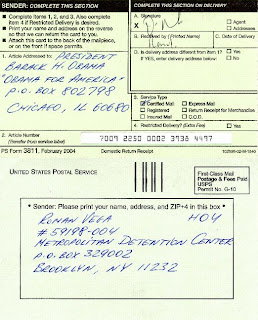 SENDER: COMPLETE THIS SECTION
Complete items 1, 2, and 3. Also complete
item 4 if Restricted Delivery is desired.
Print your name and address on the reverse
so that we can return the card to you.
Attach this card to the back of the mailpiece,
or on the front if space permits.
1. Article Addressed to:
PRESIDENT
BARACK H. OBAMA
"OBAMA FOR AMERICA"
P.O. BOX 802798
CHICAGO, IL 60680
COMPLETE THIS SECTION ON DELIVERY
A. Signature
X
Agent
Addressee
B. Received by (Printed Name)
C. Date of Delivery
D. Is delivery address different from item 1? Yes
If YES, enter delivery address below: No
3. Service Type
Certified Mail Express Mail
Registered Return Receipt for Merchandise
Insured Mail C.O.D.
4. Restricted Delivery? (Extra Fee) Yes
2. Article Number
(Transfer from service label)
7009 2250 0002 3938 4497
PS Form 3811, February 2004 Domestic Return Receipt
UNITED STATES POSTAL SERVICE
First-Class Mail
Postage & Fees Paid
USPS
Permit No. G-10
• Sender: Please print your name, address, and ZIP+4 in this box •
ROMAN VEGA H04
# 59198-004
METROPOLITAN DETENTION CENTER
P.O. BOX 329002
BROOKLYN, NY 11232